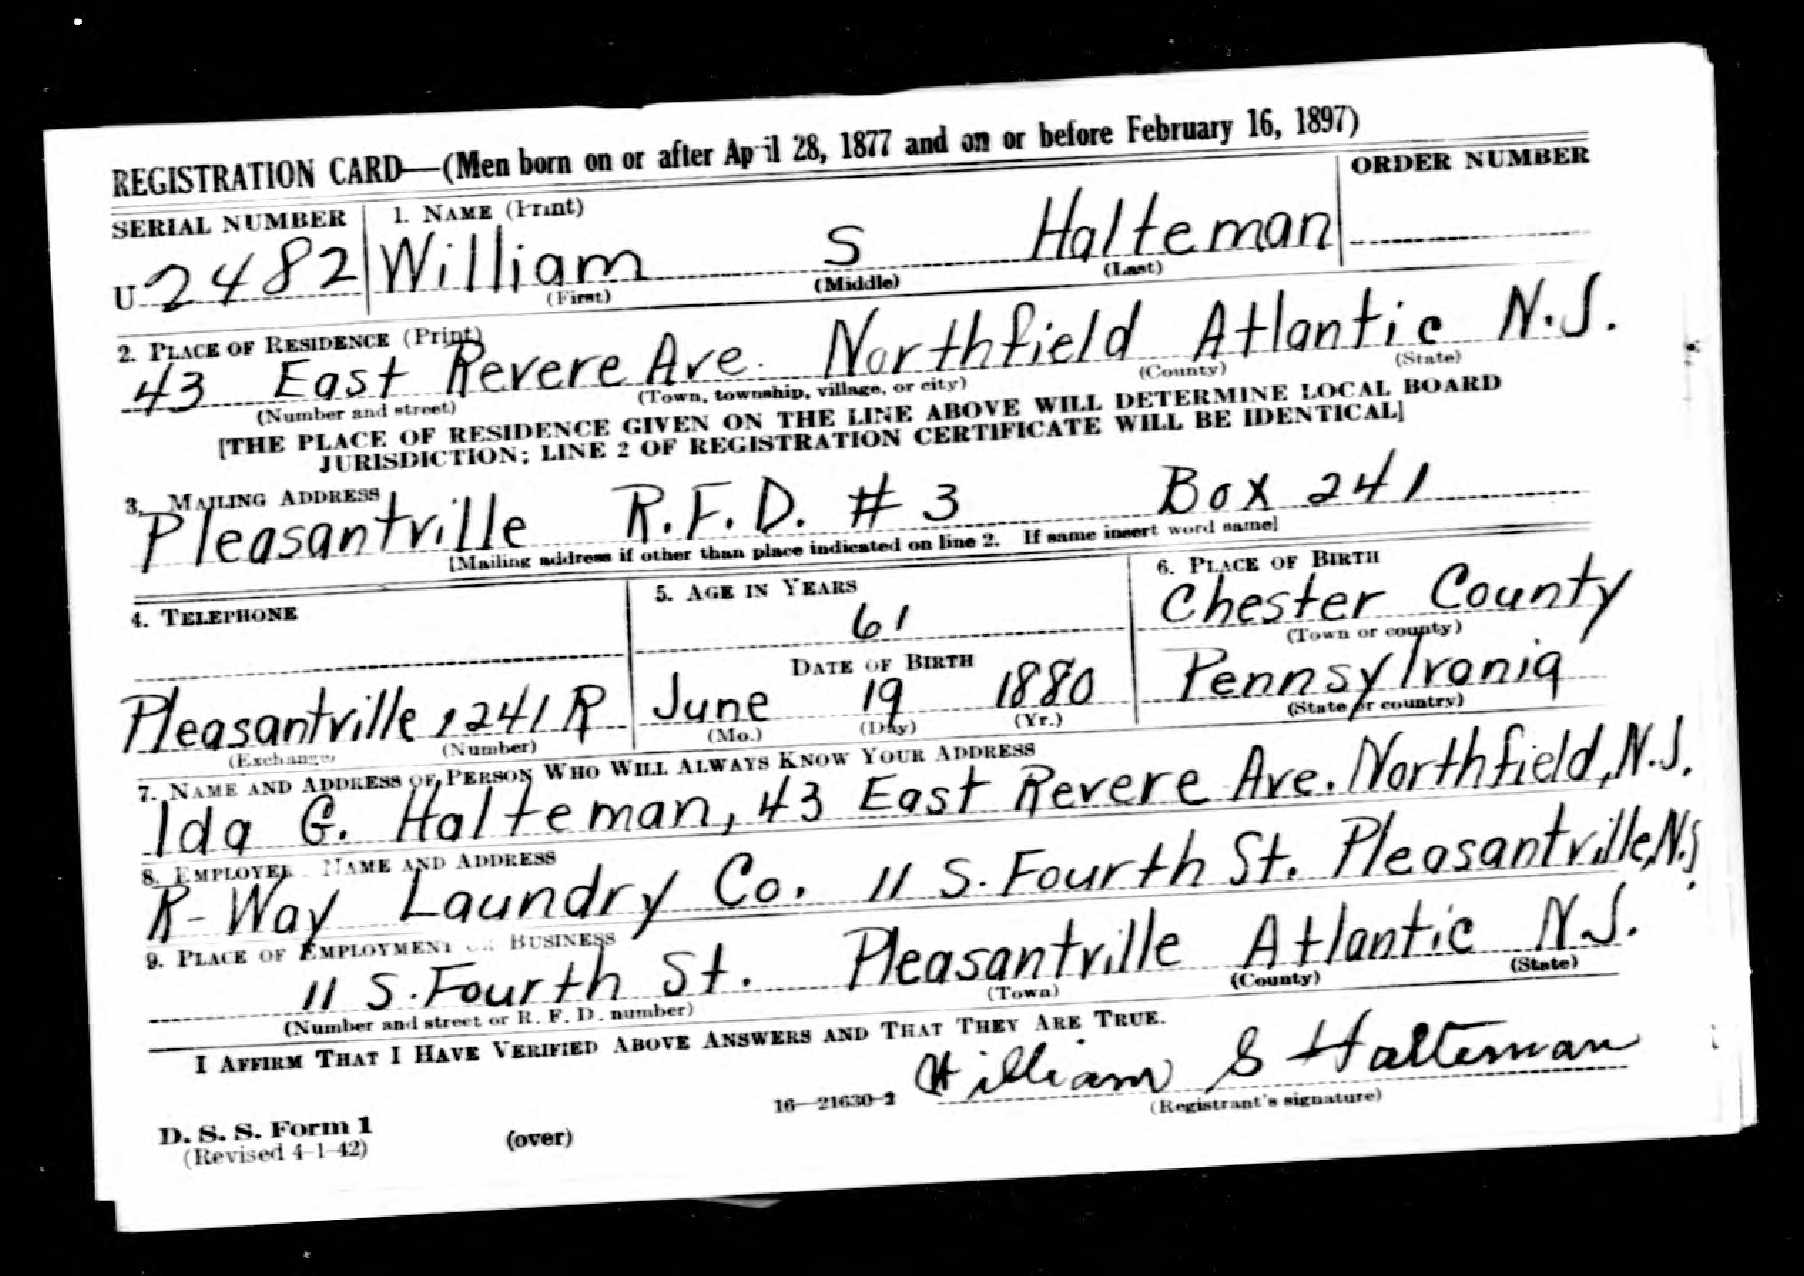 REGISTRATION CARD—(Men born on or after April 28, 1877 and on or before February 16, 1897)
SERIAL NUMBER 1. NAME (Print) ORDER NUMBER
U 2482 William S Halteman
(First) (Middle) (Last)
2. PLACE OF RESIDENCE (Print)
43 East Revere Ave. Northfield Atlantic N.J.
(Number and street) (Town, township, village, or city) (County) (State)
[THE PLACE OF RESIDENCE GIVEN ON THE LINE ABOVE WILL DETERMINE LOCAL BOARD
JURISDICTION; LINE 2 OF REGISTRATION CERTIFICATE WILL BE IDENTICAL]
3. MAILING ADDRESS
Pleasantville R.F.D. # 3 Box 241
[Mailing address if other than place indicated on line 2. If same insert word same]
4. TELEPHONE 5. AGE IN YEARS 6. PLACE OF BIRTH
61 Chester County
(Town or county)
DATE OF BIRTH
Pleasantville 1241 R June 19 1880 Pennsylvania
(Exchange) (Number) (Mo.) (Day) (Yr.) (State or country)
7. NAME AND ADDRESS OF PERSON WHO WILL ALWAYS KNOW YOUR ADDRESS
Ida G. Halteman, 43 East Revere Ave. Northfield, N.J.
8. EMPLOYER'S NAME AND ADDRESS
R-Way Laundry Co. 11 S. Fourth St. Pleasantville, N.J.
9. PLACE OF EMPLOYMENT OR BUSINESS
11 S. Fourth St. Pleasantville Atlantic N.J.
(Number and street or R. F. D. number) (Town) (County) (State)
I AFFIRM THAT I HAVE VERIFIED ABOVE ANSWERS AND THAT THEY ARE TRUE.
William S Halteman
D. S. S. Form 1 16—21630-2 (Registrant's signature)
(Revised 4-1-42) (over)